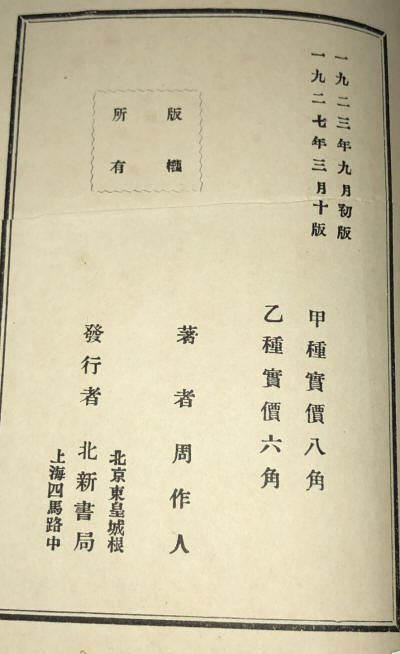 一九二三年九月初版
一九二七年三月十版
版權
所有
甲種實價八角
乙種實價六角
著者 周作人
發行者 北新書局
北京東皇城根
上海四馬路中